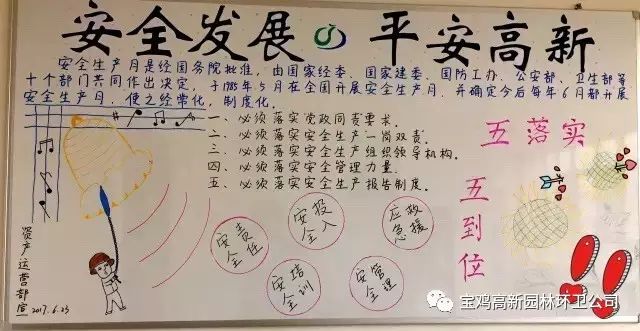 安全发展 平安高新
安全生产月是经国务院批准，由国家经委、国家建委、国防工办、公安部、卫生部等
十个部门共同作出决定，于1985年5月在全国开展安全生产月，并确定今后每年6月都开展
安全生产月，使之经常化，制度化。
一、必须落实党政同责要求。
二、必须落实安全生产一岗双责。
三、必须落实安全生产组织领导机构。
四、必须落实安全管理力量。
五、必须落实安全生产报告制度。
五落实
五到位
安全责任
安全投入
应急救援
安全培训
安全管理
资产运营部宣
2017.6.23
宝鸡高新园林环卫公司